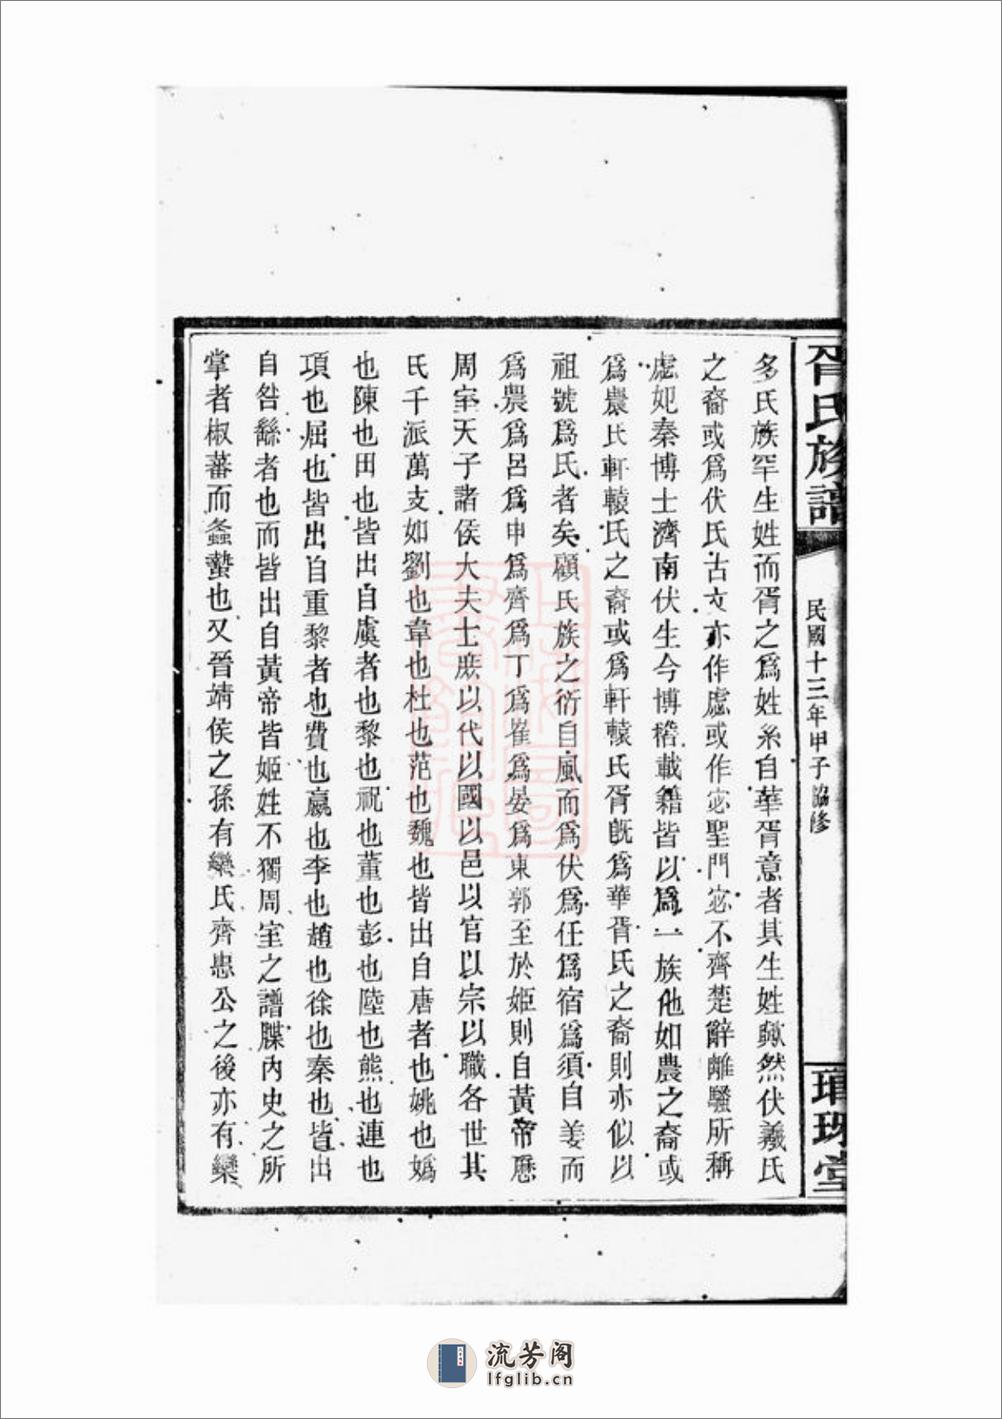 胥氏族譜
民國十三年甲子協修
珥珠堂
多氏族罕生姓而胥之爲姓系自華胥意者其生姓歟然伏羲氏
之裔或爲伏氏古文亦作虙或作宓聖門宓不齊楚辭離騷所稱
虙妃秦博士濟南伏生今博稽載籍皆以爲一族他如農之裔或
爲農氏軒轅氏之裔或爲軒轅氏胥旣爲華胥氏之裔則亦似以
祖號爲氏者矣顧氏族之衍自風而爲伏爲任爲宿爲須自姜而
爲農爲呂爲申爲齊爲丁爲崔爲晏爲東郭至於姬則自黃帝歷
周室天子諸侯大夫士庶以代以國以邑以官以宗以職各世其
氏千派萬支如劉也韋也杜也范也魏也皆出自唐者也姚也嬀
也陳也田也皆出自虞者也黎也祝也董也彭也陸也熊也連也
項也屈也皆出自重黎者也費也嬴也李也趙也徐也秦也皆出
自咎繇者也而皆出自黃帝皆姬姓不獨周室之譜牒內史之所
掌者椒蕃而螽蟄也又晉靖侯之孫有欒氏齊惠公之後亦有欒
流芳阁
lfglib.cn